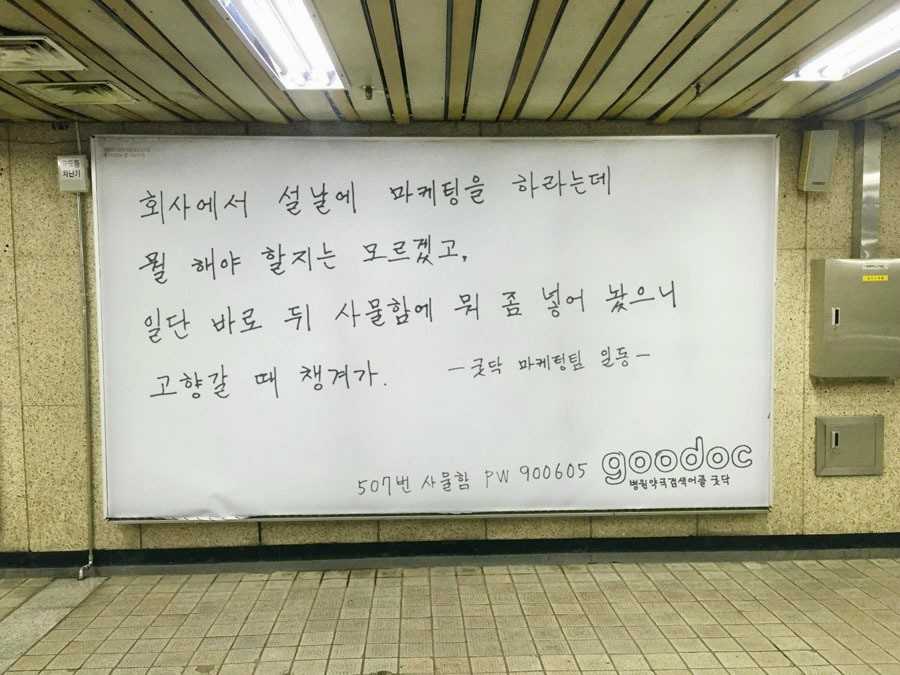 회사에서 설날에 마케팅을 하라는데
뭘 해야 할지는 모르겠고,
일단 바로 뒤 사물함에 뭐 좀 넣어 놨으니
고향갈 때 챙겨가.
- 굿닥 마케팅팀 일동 -
507번 사물함 PW 900605
goodoc
병원약국검색어플 굿닥